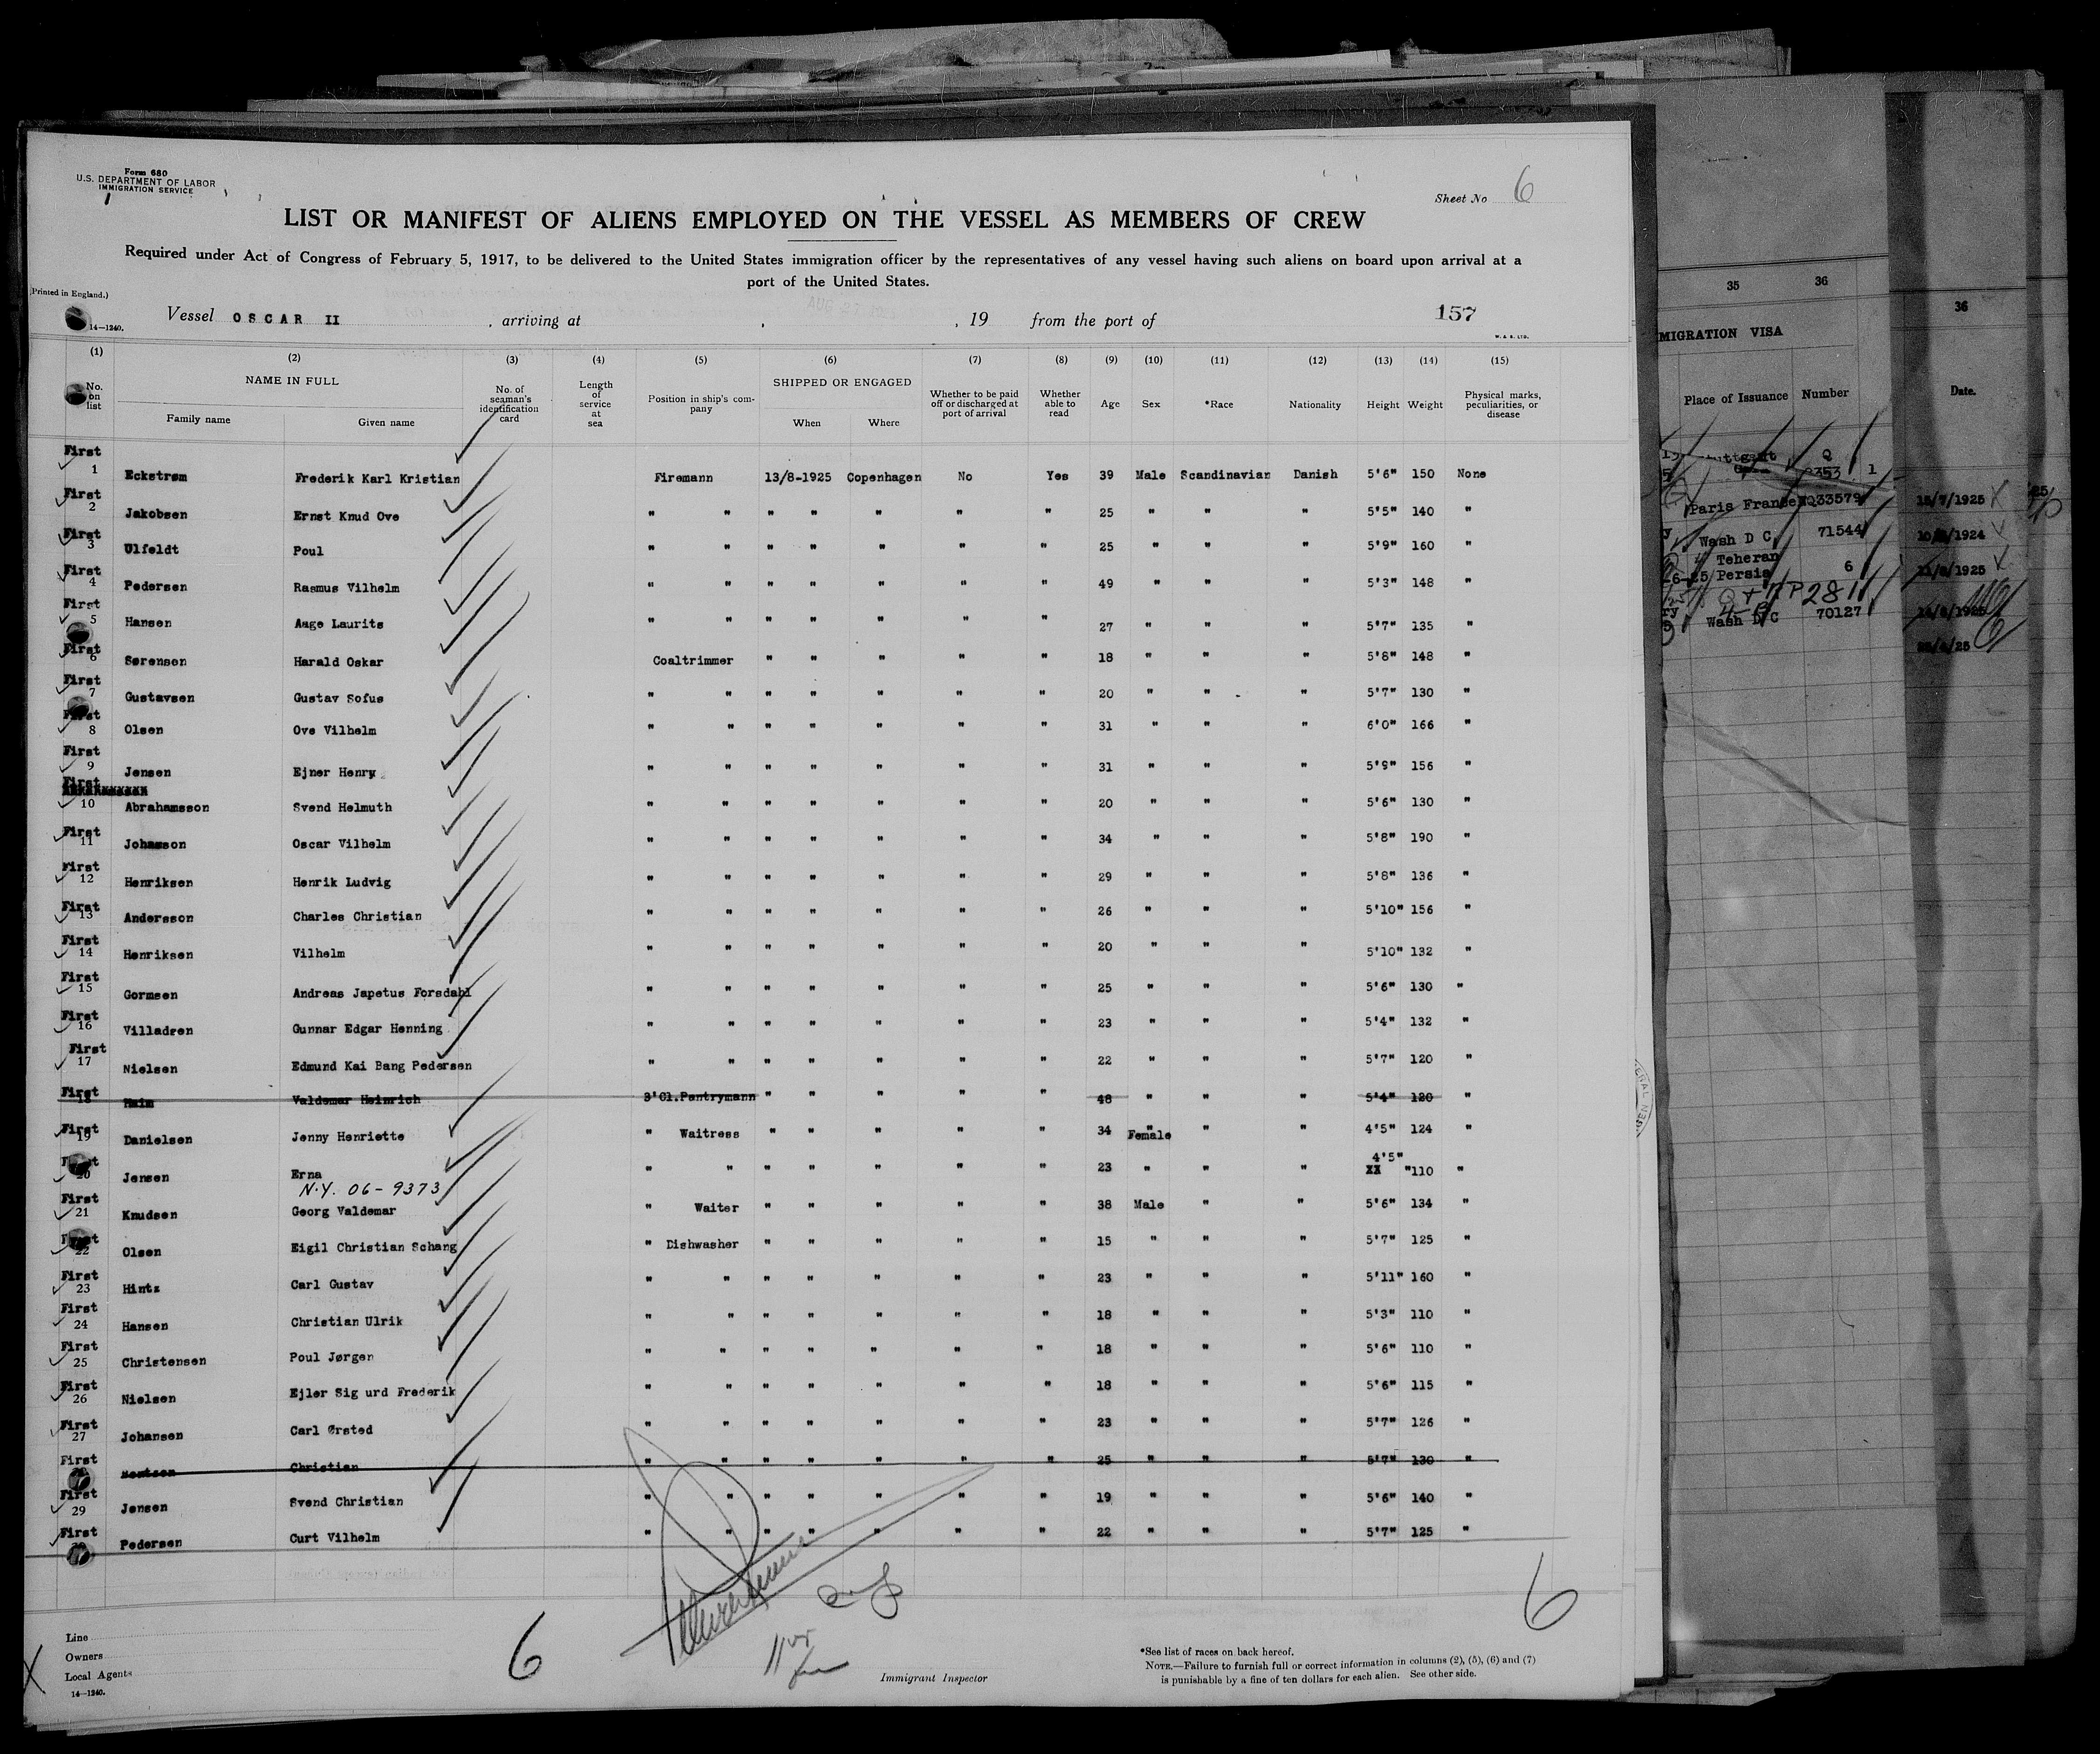 Form 680
U.S. DEPARTMENT OF LABOR
IMMIGRATION SERVICE
Sheet No 6
LIST OR MANIFEST OF ALIENS EMPLOYED ON THE VESSEL AS MEMBERS OF CREW
Required under Act of Congress of February 5, 1917, to be delivered to the United States immigration officer by the representatives of any vessel having such aliens on board upon arrival at a
port of the United States.
Printed in England.)
14—1240.
Vessel OSCAR II , arriving at , , 19 from the port of 157
W. & S. LTD.
(1) (2) (3) (4) (5) (6) (7) (8) (9) (10) (11) (12) (13) (14) (15)
No. on list NAME IN FULL Family name Given name No. of seaman's identification card Length of service at sea Position in ship's company SHIPPED OR ENGAGED When Where Whether to be paid off or discharged at port of arrival Whether able to read Age Sex *Race Nationality Height Weight Physical marks, peculiarities, or disease
First 1 Eckstrøm Frederik Karl Kristian Firemann 13/8-1925 Copenhagen No Yes 39 Male Scandinavian Danish 5'6" 150 None
First 2 Jakobsen Ernst Knud Ove " " " " " " " 25 " " " 5'5" 140 "
First 3 Ulfeldt Poul " " " " " " " 25 " " " 5'9" 160 "
First 4 Pedersen Rasmus Vilhelm " " " " " " " 49 " " " 5'3" 148 "
First 5 Hansen Aage Laurits " " " " " " " 27 " " " 5'7" 135 "
First 6 Sørensen Harald Oskar Coaltrimmer " " " " " 18 " " " 5'8" 148 "
First 7 Gustavsen Gustav Sofus " " " " " " " 20 " " " 5'7" 130 "
First 8 Olsen Ove Vilhelm " " " " " " " 31 " " " 6'0" 166 "
First 9 Jensen Ejner Henry " " " " " " " 31 " " " 5'9" 156 "
First 10 Abrahamsson Svend Helmuth " " " " " " " 20 " " " 5'6" 130 "
First 11 Johansson Oscar Vilhelm " " " " " " " 34 " " " 5'8" 190 "
First 12 Henriksen Henrik Ludvig " " " " " " " 29 " " " 5'8" 136 "
First 13 Andersson Charles Christian " " " " " " " 26 " " " 5'10" 156 "
First 14 Henriksen Vilhelm " " " " " " " 20 " " " 5'10" 132 "
First 15 Gormsen Andreas Japetus Forsdahl " " " " " " " 25 " " " 5'6" 130 "
First 16 Villadren Gunnar Edgar Henning " " " " " " " 23 " " " 5'4" 132 "
First 17 Nielsen Edmund Kai Bang Pedersen " " " " " " " 22 " " " 5'7" 120 "
First 18 Valdemar Heinrich 3'Cl.Pantrymann " " " " " 48 " " " 5'4" 120 "
First 19 Danielsen Jenny Henriette " Waitress " " " " " 34 " Female " " 4'5" 124 "
First 20 Jensen Erna " " " " " " " 23 " " " 4'5" XX "110 "
N.Y. 06-9373
First 21 Knudsen Georg Valdemar " Waiter " " " " " 38 Male " " 5'6" 134 "
First 22 Olsen Eigil Christian Schang " Dishwasher " " " " " 15 " " " 5'7" 125 "
First 23 Hintz Carl Gustav " " " " " " " 23 " " " 5'11" 160 "
First 24 Hansen Christian Ulrik " " " " " " " 18 " " " 5'3" 110 "
First 25 Christensen Poul Jørgen " " " " " " " 18 " " " 5'6" 110 "
First 26 Nielsen Ejler Sig urd Frederik " " " " " " " 18 " " " 5'6" 115 "
First 27 Johansen Carl Ørsted " " " " " " " 23 " " " 5'7" 126 "
First Christian " " " " " " " 25 " " " 5'7" 130 "
First 29 Jensen Svend Christian " " " " " " " 19 " " " 5'6" 140 "
First Pedersen Curt Vilhelm " " " " " " " 22 " " " 5'7" 125 "
6
6
Line
Owners
Local Agents
14—1240.
Immigrant Inspector
*See list of races on back hereof.
NOTE.—Failure to furnish full or correct information in columns (2), (5), (6) and (7)
is punishable by a fine of ten dollars for each alien. See other side.
35 36
MIGRATION VISA
Place of Issuance Number
Paris France 33579
Wash D C 71544
Teheran
Persia 6
Wash D C 70127
36
Date.
15/7/1925